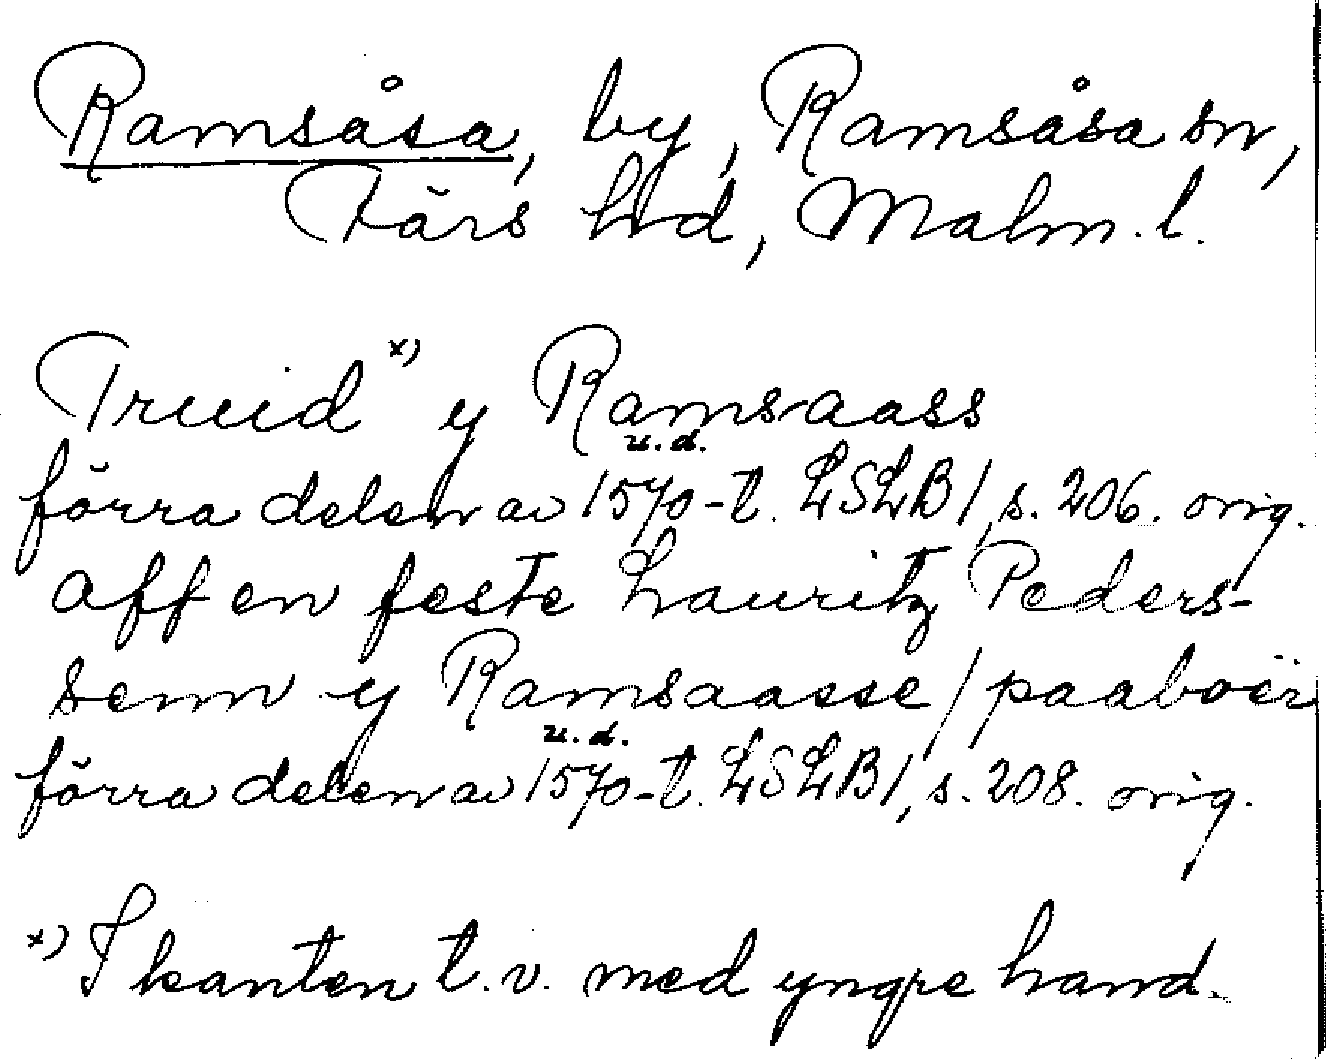 Ramsåsa, by, Ramsåsa sn,
Färs hd, Malm. l.
Truid x) y Ramsaass
u. d.
förra delen av 1570-t. LSLB 1, s. 206. orig.
Aff en feste Lauritz Peders-
senn y Ramsaasse / paaboër
u. d.
förra delen av 1570-t. LSLB 1, s. 208. orig.
x) I kanten t.v. med yngre hand.